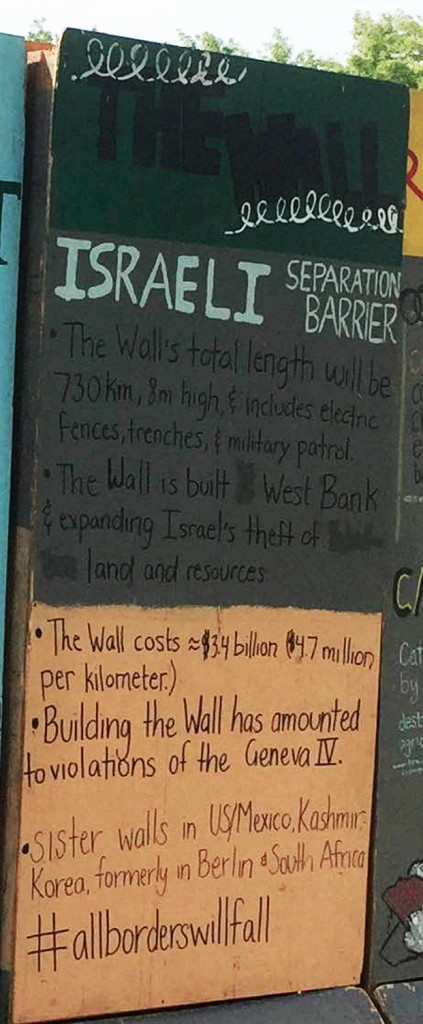 THE WALL
ISRAELI SEPARATION
BARRIER
• The Wall's total length will be
730 km, 8m high, & includes electric
fences, trenches, & military patrol.
• The Wall is built West Bank
& expanding Israel's theft of
land and resources
• The Wall costs ≈$3.4 billion ($4.7 million
per kilometer.)
• Building the Wall has amounted
to violations of the Geneva IV.
• Sister walls in US/Mexico, Kashmir,
Korea, formerly in Berlin & South Africa
#allborderswillfall